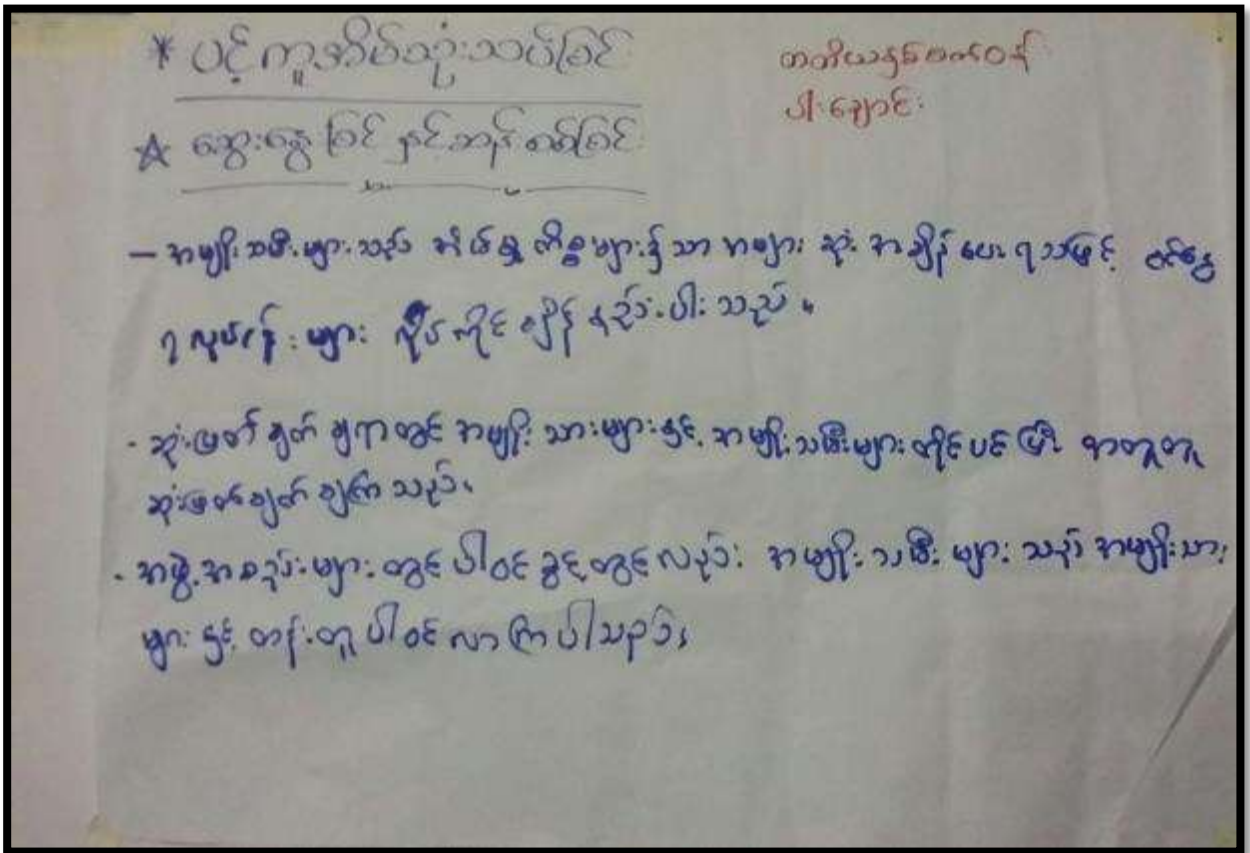 * ပင့်ကူအိမ်သုံးသပ်ခြင်း
တတိယနှစ်ပတ်ဝန်
ပါးချောင်း
☆ ဆွေးနွေးခြင်း နှင့်ဆန်းစစ်ခြင်း
– အမျိုးသမီးများသည် အိမ်မှု ကိစ္စများ၌သာ အများ ဆုံး အချိန် ပေးရသဖြင့်
လုပ်ငန်းများ လုပ်ကိုင်ချိန် နည်းပါးသည်။
- ဆုံးဖြတ်ချက် ချရာတွင် အမျိုးသားများနှင့် အမျိုးသမီးများ တိုင်ပင်ပြီး အတူတူ
ဆုံးဖြတ်ချက် ချကြသည်။
- အဖွဲ့အစည်းများတွင် ပါဝင်ခွင့်တွင်လည်း အမျိုးသမီးများသည် အမျိုးသား
များနှင့် တန်းတူ ပါဝင်လာကြပါသည်။